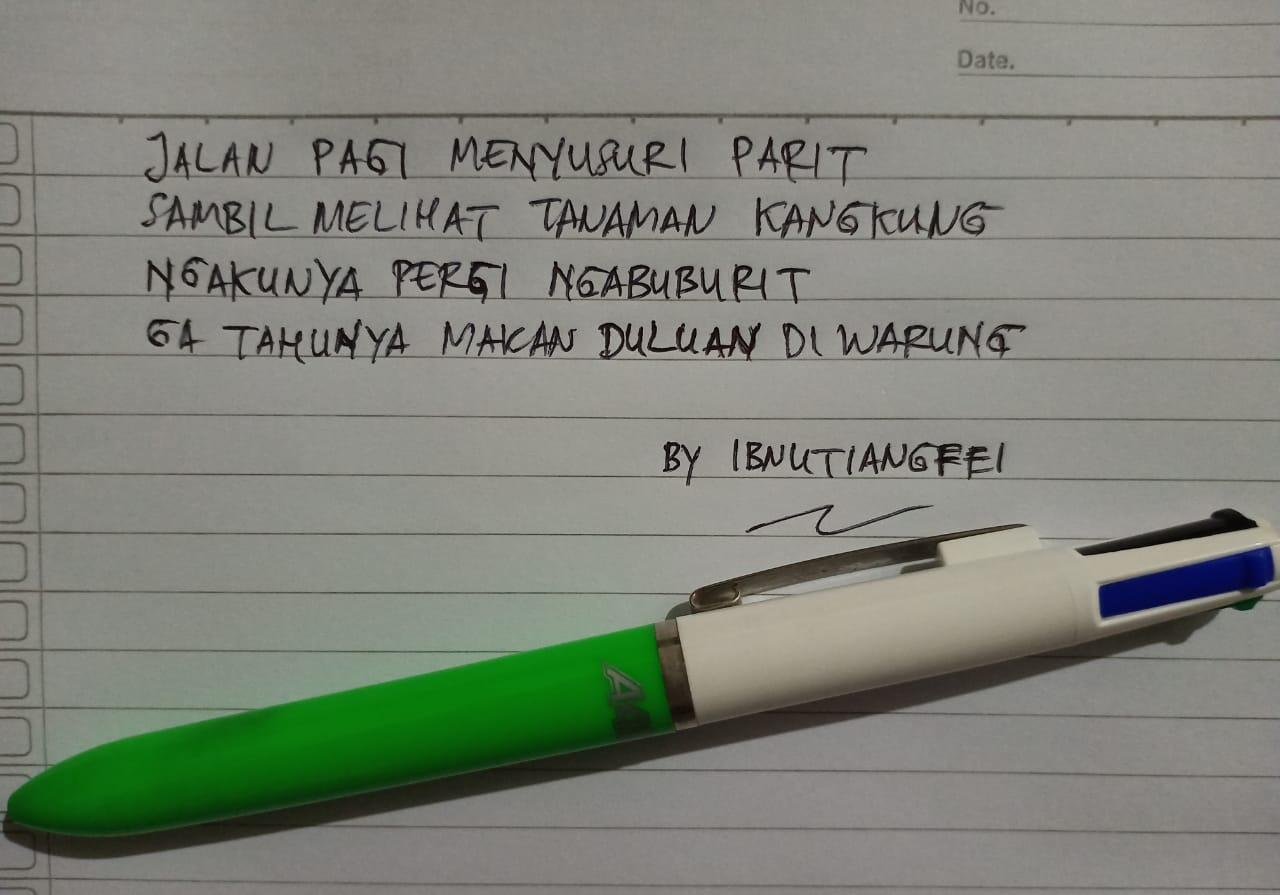 No.
Date.
JALAN PAGI MENYUSURI PARIT
SAMBIL MELIHAT TANAMAN KANGKUNG
NGAKUNYA PERGI NGABUBURIT
GA TAHUNYA MAKAN DULUAN DI WARUNG
BY IBNUTIANGFEI